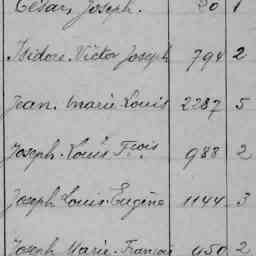 César, Joseph. 20 1
Isidore Victor Joseph 794 2
Jean. Marie Louis 2287 5
Joseph. Louis Fçois 988 2
Joseph Louis Eugène 1144 3
Joseph Marie François 450 2